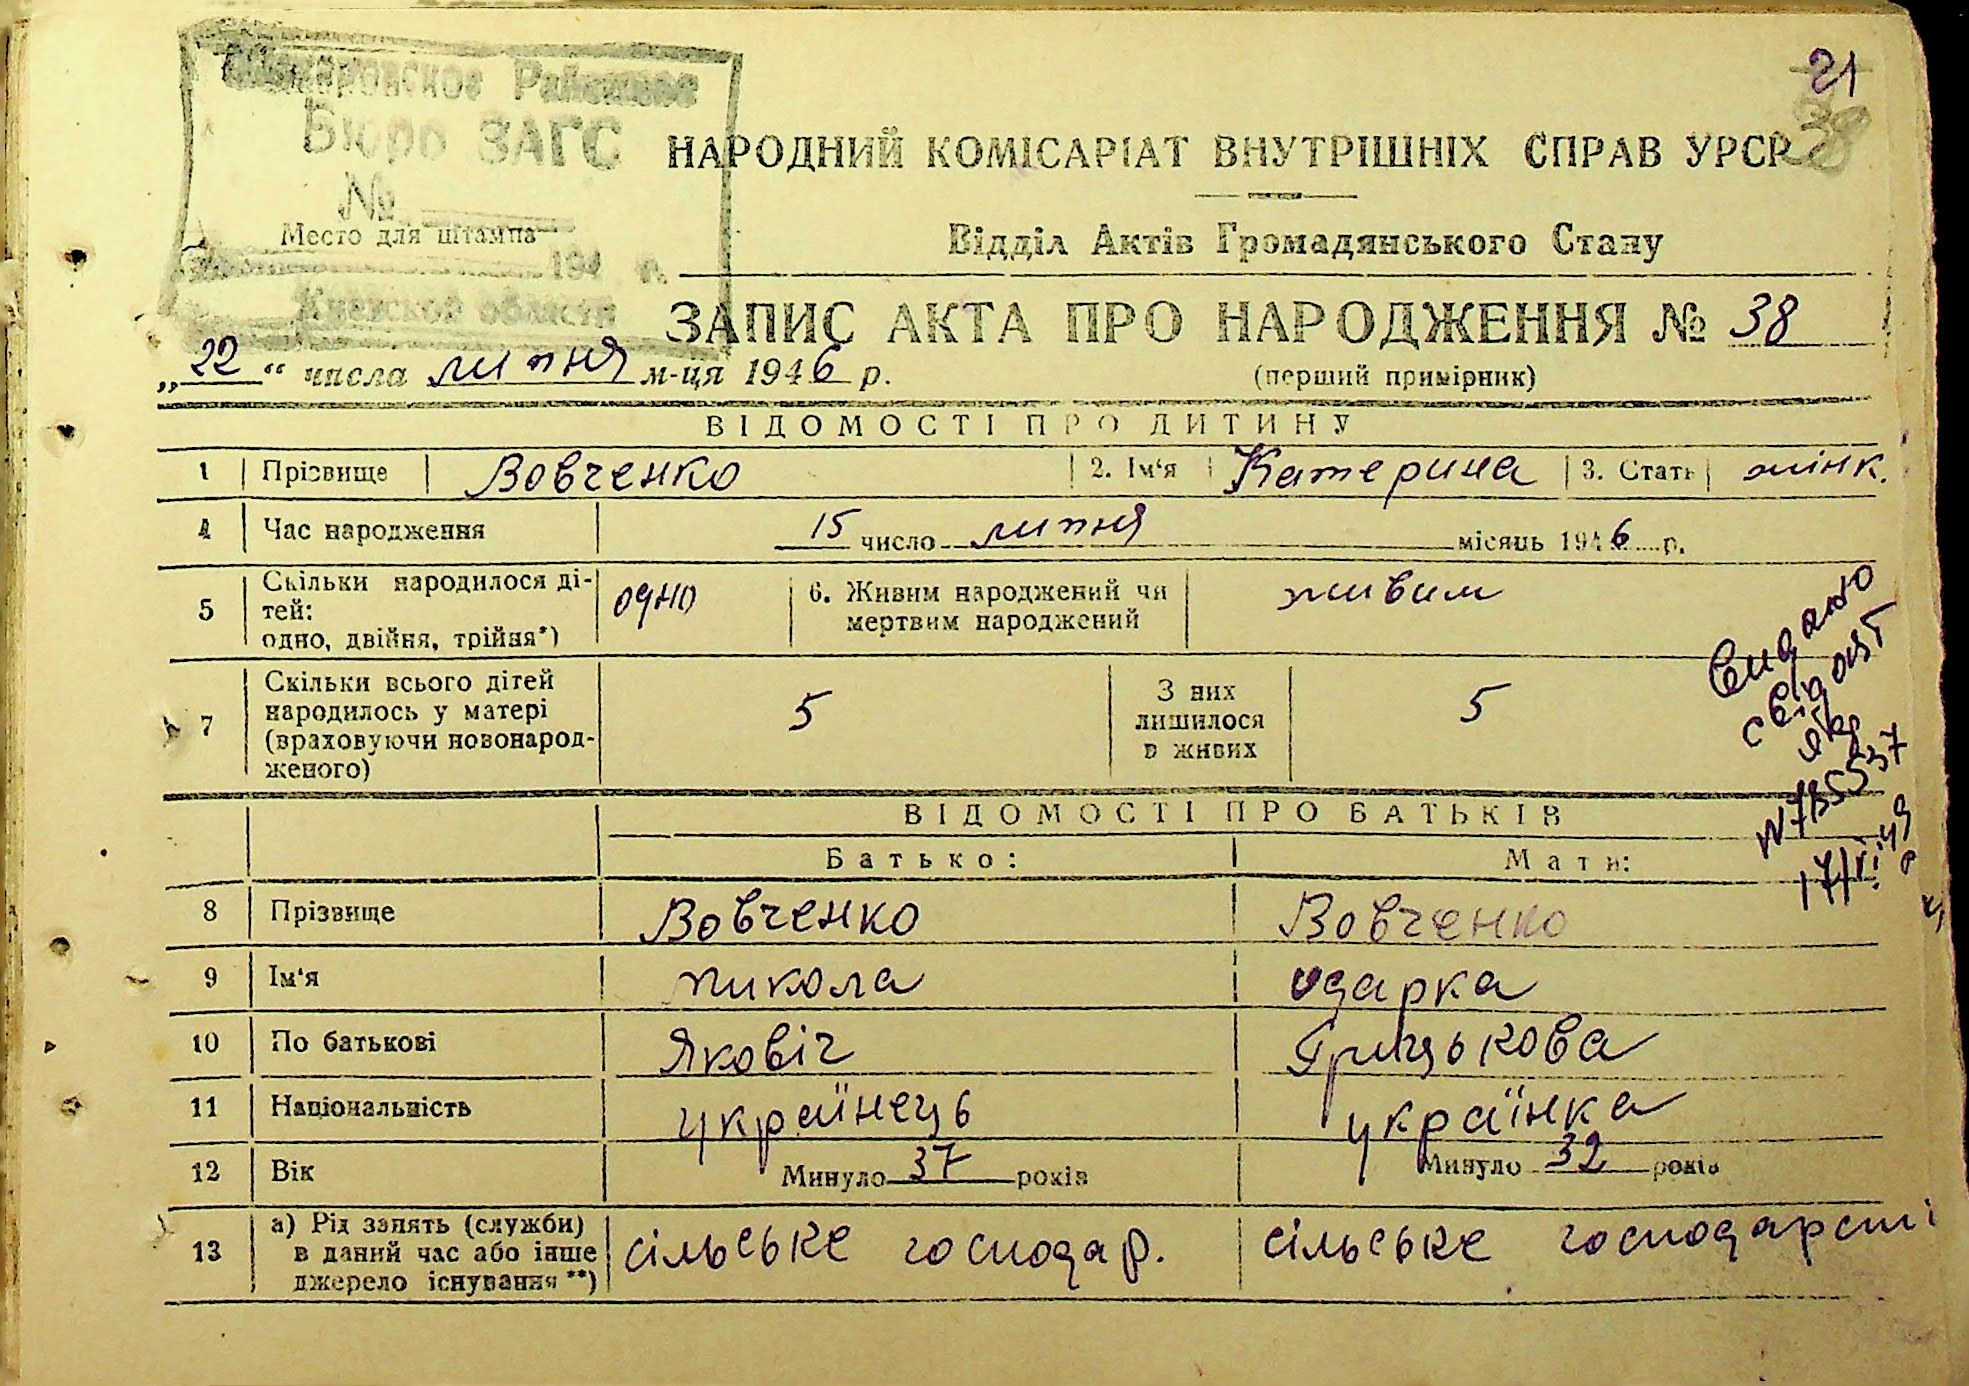 21
38
Районное
Бюро ЗАГС
№
Место для штампа
194 г.
Киевской области
НАРОДНИЙ КОМІСАРІАТ ВНУТРІШНІХ СПРАВ УРСР
Відділ Актів Громадянського Стану
ЗАПИС АКТА ПРО НАРОДЖЕННЯ № 38
„22“ числа липня м-ця 1946 р.
(перший примірник)
ВІДОМОСТІ ПРО ДИТИНУ
1 Прізвище Вовченко 2. Ім‘я Катерина 3. Стать жінк.
4 Час народження 15 число липня місяць 1946 р.
5 Скільки народилося ді-
тей:
одно, двійня, трійня*) одно 6. Живим народжений чи
мертвим народжений живим
7 Скільки всього дітей
народилось у матері
(враховуючи новонарод-
женого) 5 З них
лишилося
в живих 5
Видано
свідоцт
ЯБ
N 735537
17/VI 49
ВІДОМОСТІ ПРО БАТЬКІВ
Батько: Мати:
8 Прізвище Вовченко Вовченко
9 Ім‘я Микола Одарка
10 По батькові Яковіч Грицькова
11 Національність українець українка
12 Вік Минуло 37 років Минуло 32 років
13 а) Рід занять (служби)
в даний час або інше
джерело існування **) сільське господар. сільське господарсті